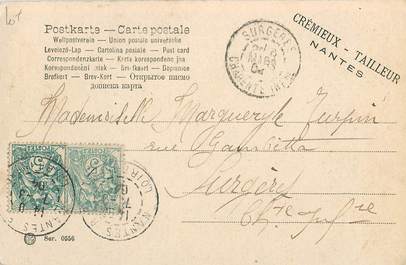 Postkarte – Carte postale
Weltpostverein – Union postale universelle
Levelező-Lap – Cartolina postale – Post card
Correspondenzkarte – Carta korrespondenc
Korespondenční lístek – Briefkaart – Dopisnice
Brefkort – Brev-Kort – Открытое письмо
дописна карта
CRÉMIEUX - TAILLEUR
NANTES
SURGERES
MARS
04
CHARENTE INFRE
Mademoiselle Marguerite Turpin
rue Gambetta
Surgères
Chte Infre
NANTES
Ser. 0656